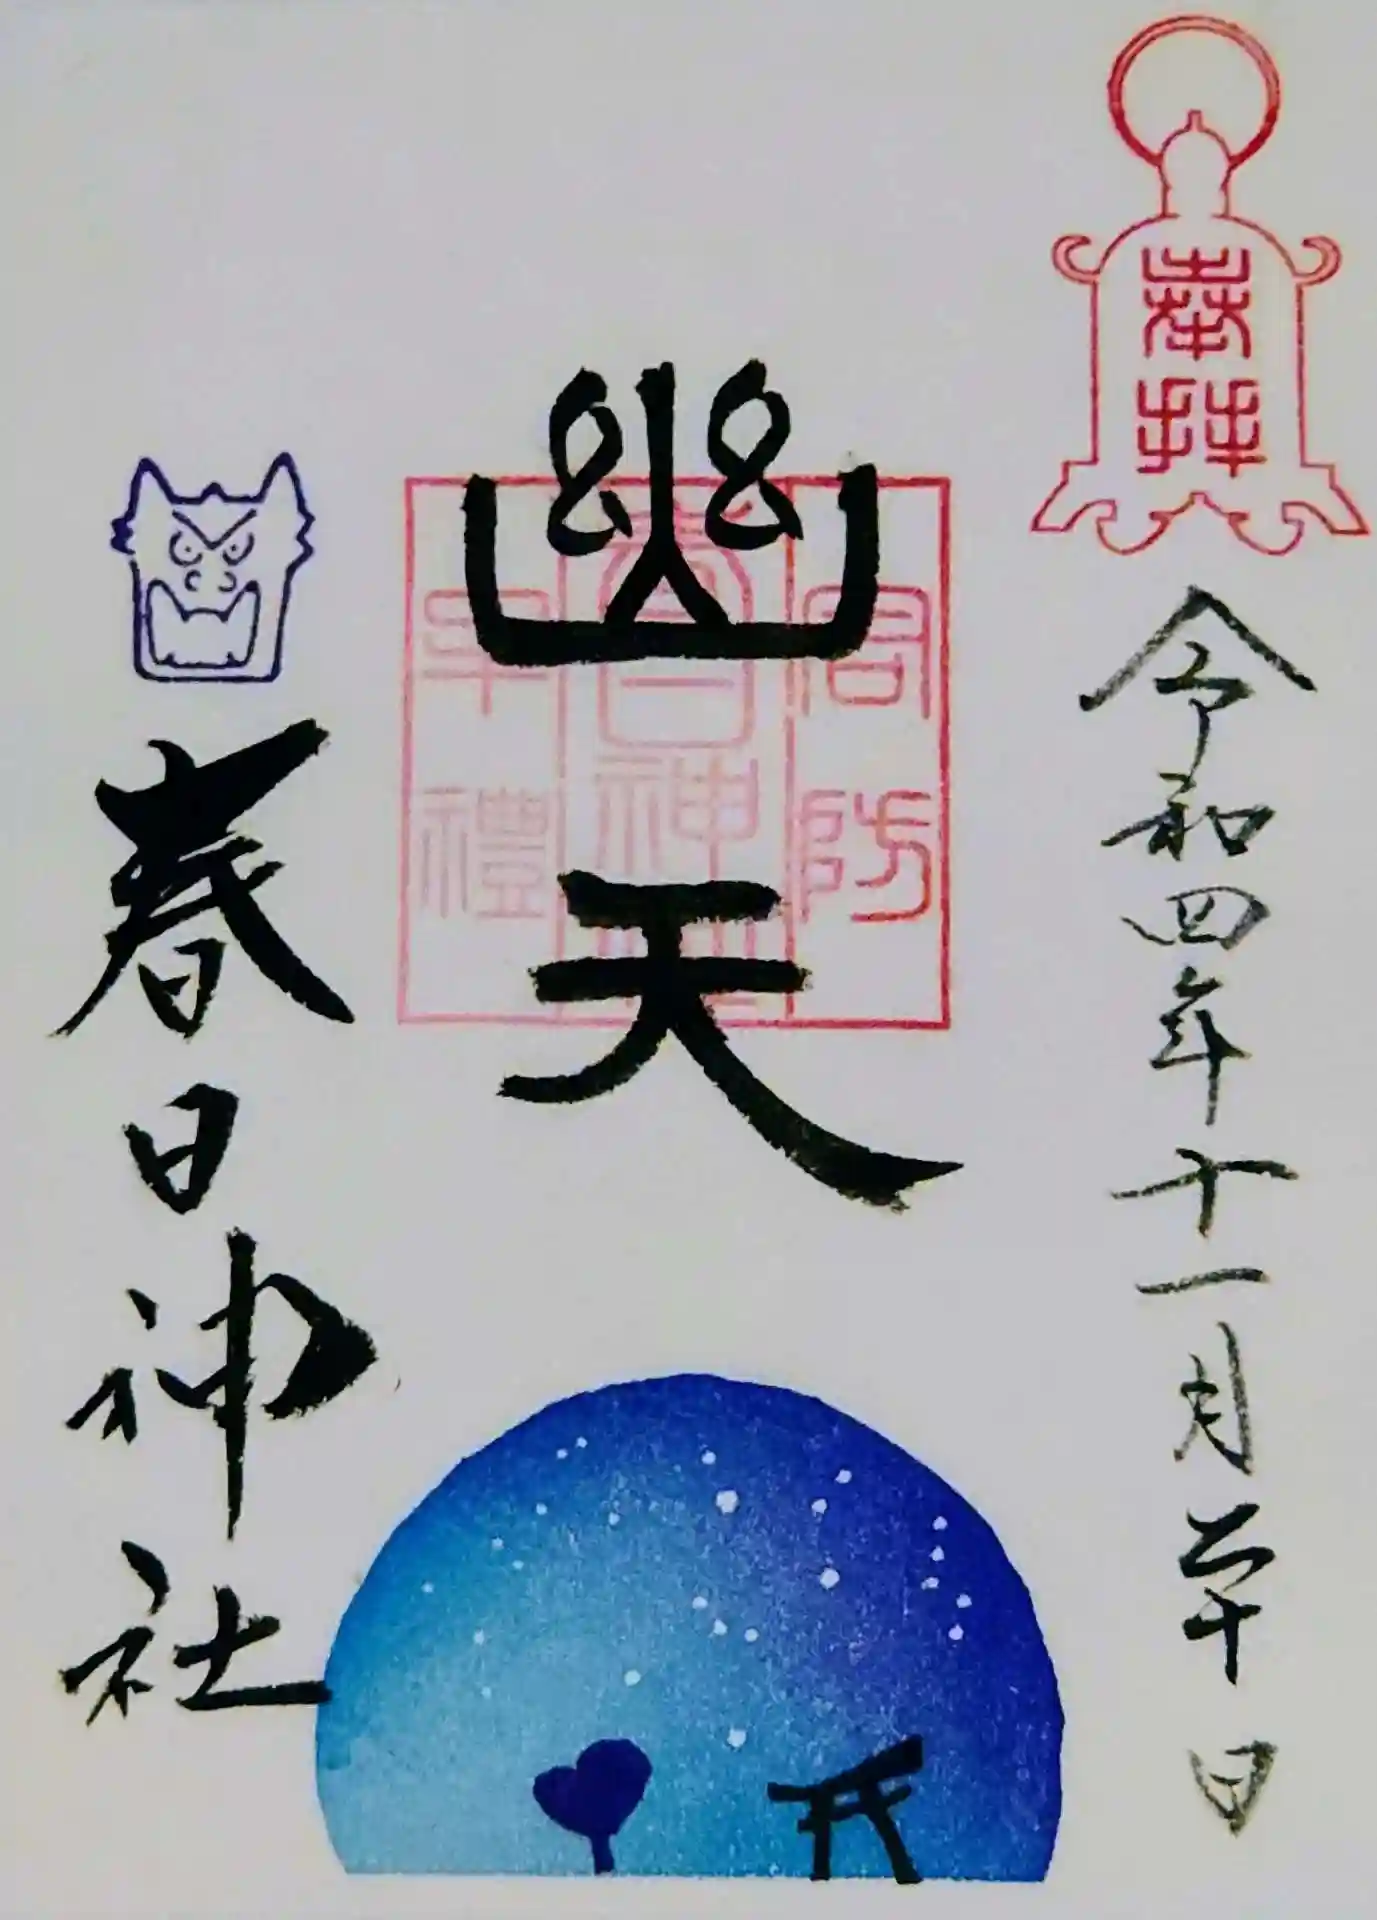 奉拝
令和四年十一月二十日
幽天
周防
春日神社
牟禮
春日神社